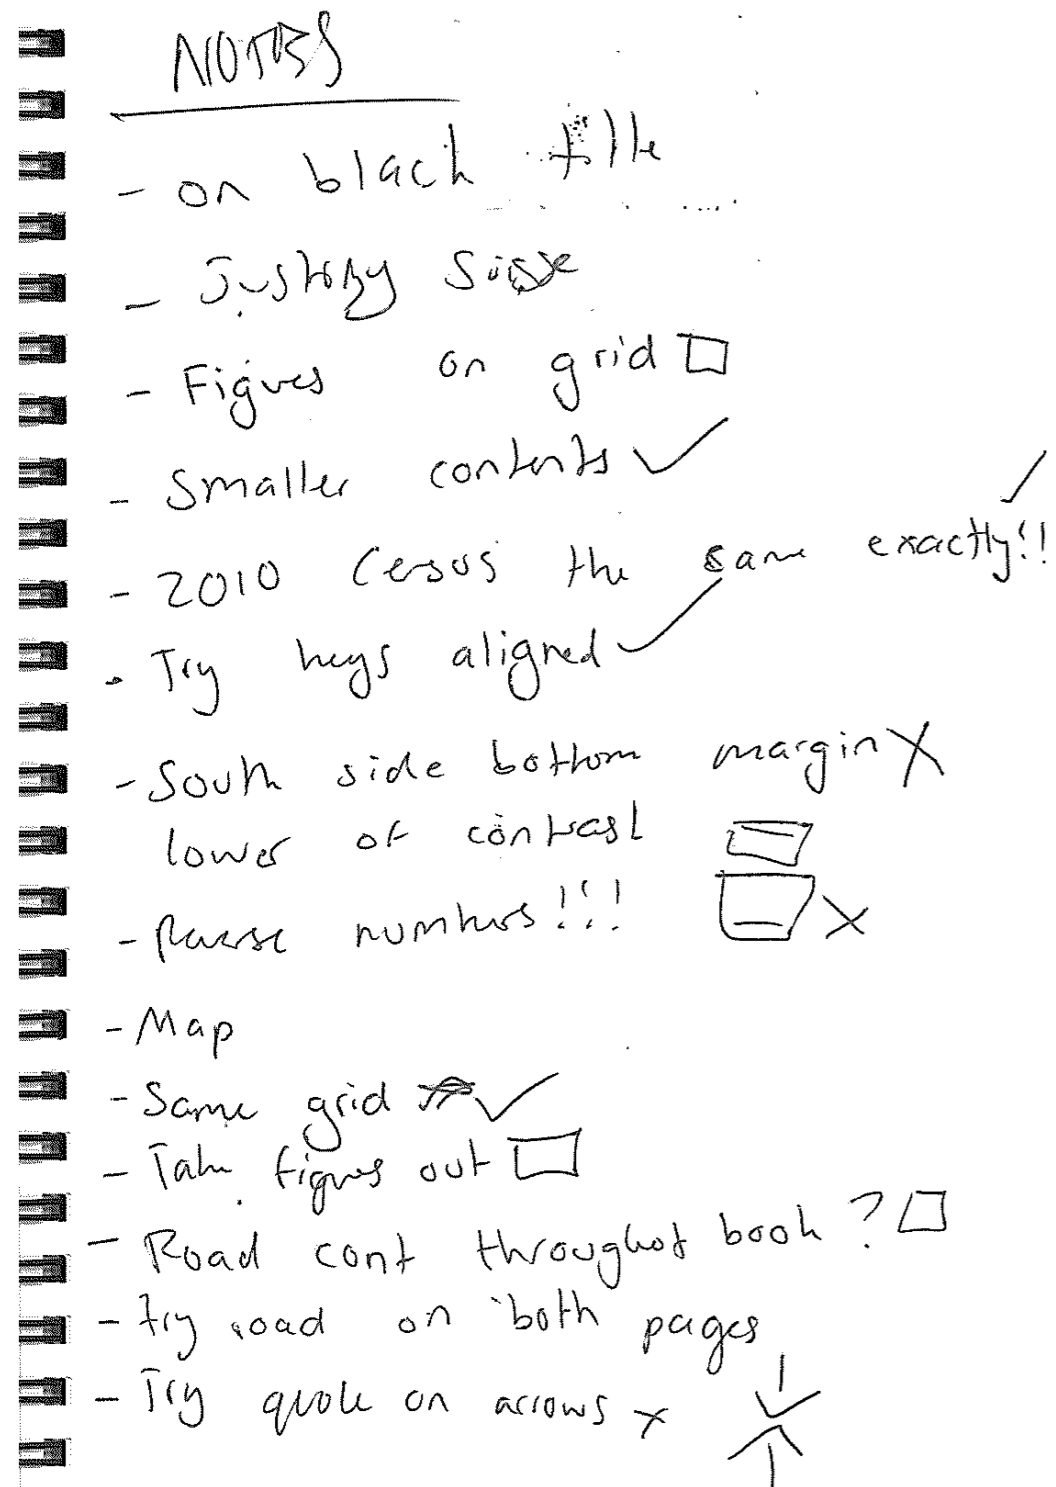 NOTES
- on black title
- Justify
- Figures on grid
- Smaller contents
- 2010 Cesus the same exactly!!
- Try keys aligned
- South side bottom margin X
lower of contrast
- numbers!!!
X
- Map
- Same grid
- Take figures out
- Road cont throughot book?
- try road on both pages
- Try quote on arrows x